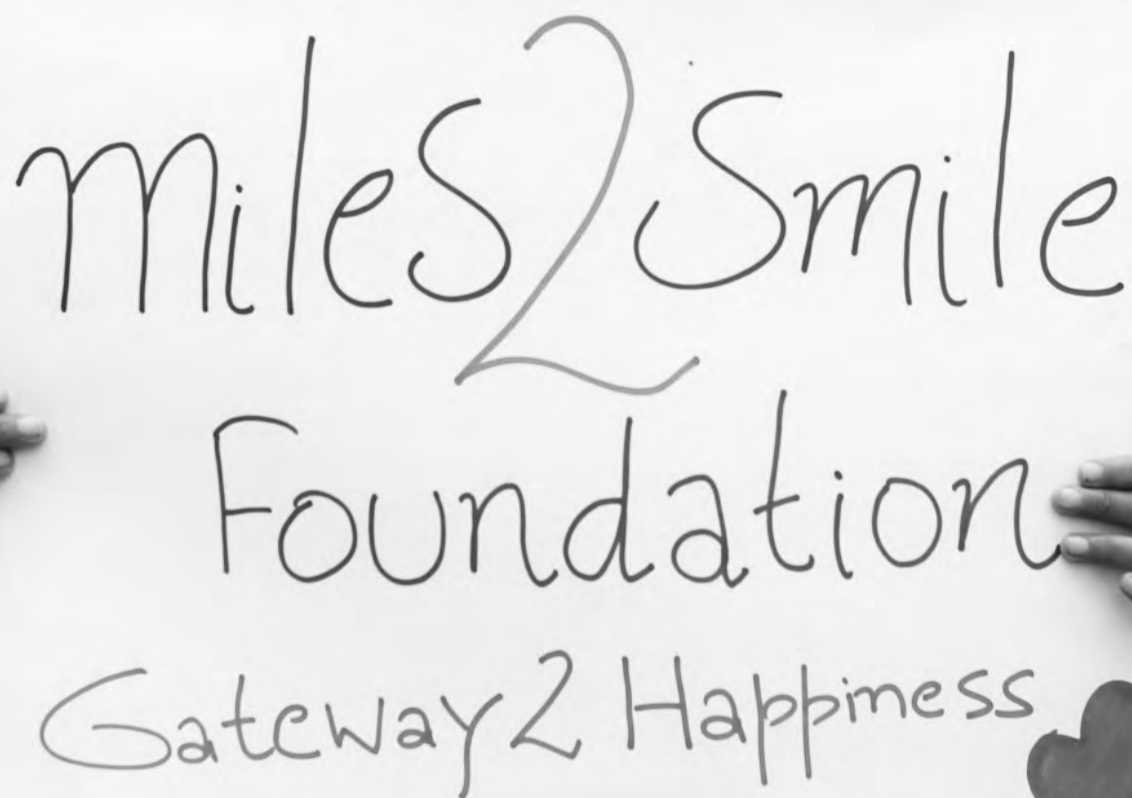 Miles2Smile
Foundation
Gateway 2 Happiness